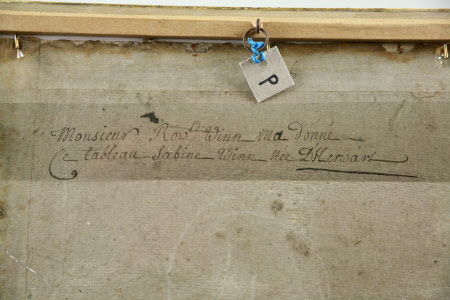 P
Monsieur Row.ld Winn ma donné
Ce tableau Sabine Winn née D'Hervart